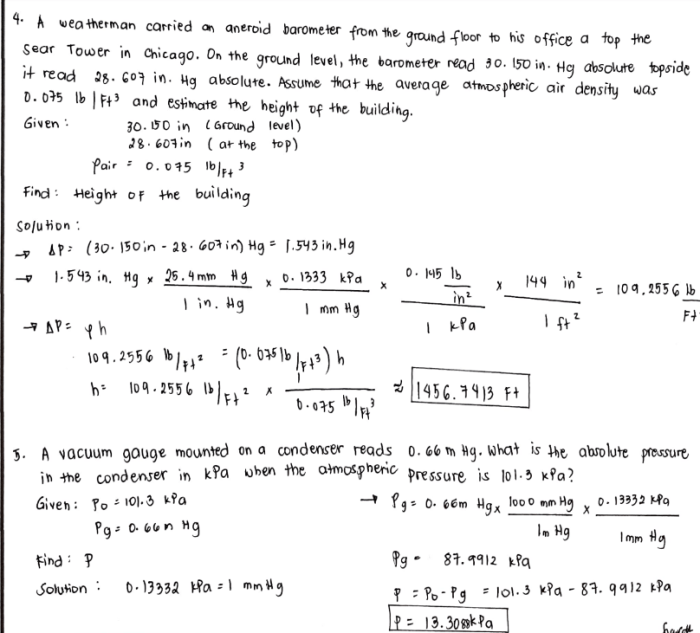 4. A weatherman carried an aneroid barometer from the ground floor to his office a top the
Sear Tower in Chicago. On the ground level, the barometer read 30.150 in. Hg absolute topside
it read 28.607 in. Hg absolute. Assume that the average atmospheric air density was
0.075 lb/Ft³ and estimate the height of the building.
Given: 30.150 in (Ground level)
28.607in (at the top)
Pair = 0.075 lb/Ft³
Find: Height of the building
Solution:
→ ΔP = (30.150in - 28.607in) Hg = 1.543 in.Hg
→ 1.543 in. Hg x 25.4mm Hg / 1 in. Hg x 0.1333 kPa / 1 mm Hg x 0.145 lb/in² / 1 kPa x 144 in² / 1 ft² = 109.2556 lb/Ft
→ ΔP = φh
109.2556 lb/Ft² = (0.075lb/Ft³) h
h = 109.2556 lb/Ft² x 1 / 0.075 lb/Ft³ ≈ 1456.7413 Ft
5. A vacuum gauge mounted on a condenser reads 0.66 m Hg. What is the absolute pressure
in the condenser in kPa when the atmospheric pressure is 101.3 kPa?
Given: Po = 101.3 kPa
Pg = 0.66m Hg
Find: P
Solution: 0.13332 kPa = 1 mmHg
→ Pg = 0.66m Hg x 1000 mm Hg / 1m Hg x 0.13332 kPa / 1mm Hg
Pg = 87.9912 kPa
P = Po - Pg = 101.3 kPa - 87.9912 kPa
P = 13.3088kPa